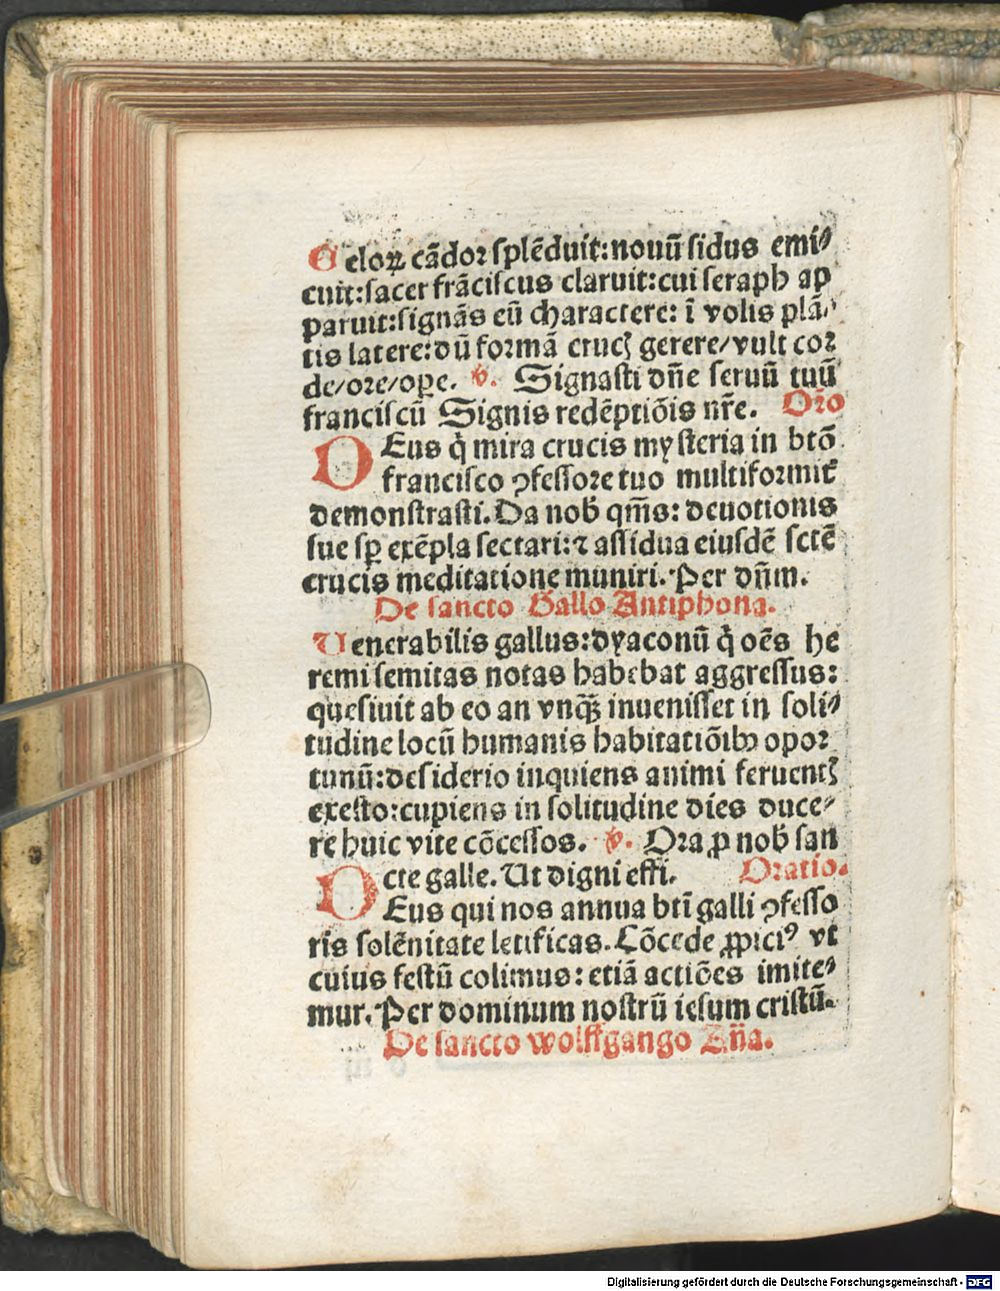 Celoꝝ cādoꝛ ſplēduit: nouū ſidus emi⸗
cuit: ſacer frāciſcus claruit: cui ſeraph ap
paruit: ſignās eū charactere: ī volis plā⸗
tis latere: dū formā crucꝭ gerere/ vult coꝛ
de/ oꝛe/ oꝑe. ℣. Signaſti dn̄e ſeruū tuū
franciſcū Signis redēptiōis nr̄e. Oꝛ̄o
DEus q̇ mira crucis myſteria in btō
franciſco ꝯfeſſoꝛe tuo multifoꝛmit̄
demonſtraſti. Da nob̄ qm̄s: deuotionis
ſue ſꝑ exēpla ſectari: ⁊ aſſidua eiuſdē ſctē
crucis meditatione muniri. Per dn̄m.
De ſancto Gallo Antiphona.
Uenerabilis gallus: dyaconū q̇ oēs he
remi ſemitas notas habebat aggreſſus:
queſiuit ab eo an vnqꝫ̄ inueniſſet in ſoli⸗
tudine locū humanis habitatiōibꝰ opoꝛ
tunū: deſiderio inquiens animi feruentꝭ
exeſto: cupiens in ſolitudine dies duce⸗
re huic vite cōceſſos. ℣. Oꝛa ꝓ nob̄ ſan
cte galle. Ut digni effi. Oꝛatio.
DEus qui nos annua btī galli ꝯfeſſo
ris ſolēnitate letificas. Cōcede ꝓpiciꝰ vt
cuius feſtū colimus: etiā actiōes imite⸗
mur. Per dominum noſtrū ieſum criſtū.
De ſancto wolffgango An̄a.
Digitalisierung gefördert durch die Deutsche Forschungsgemeinschaft - DFG